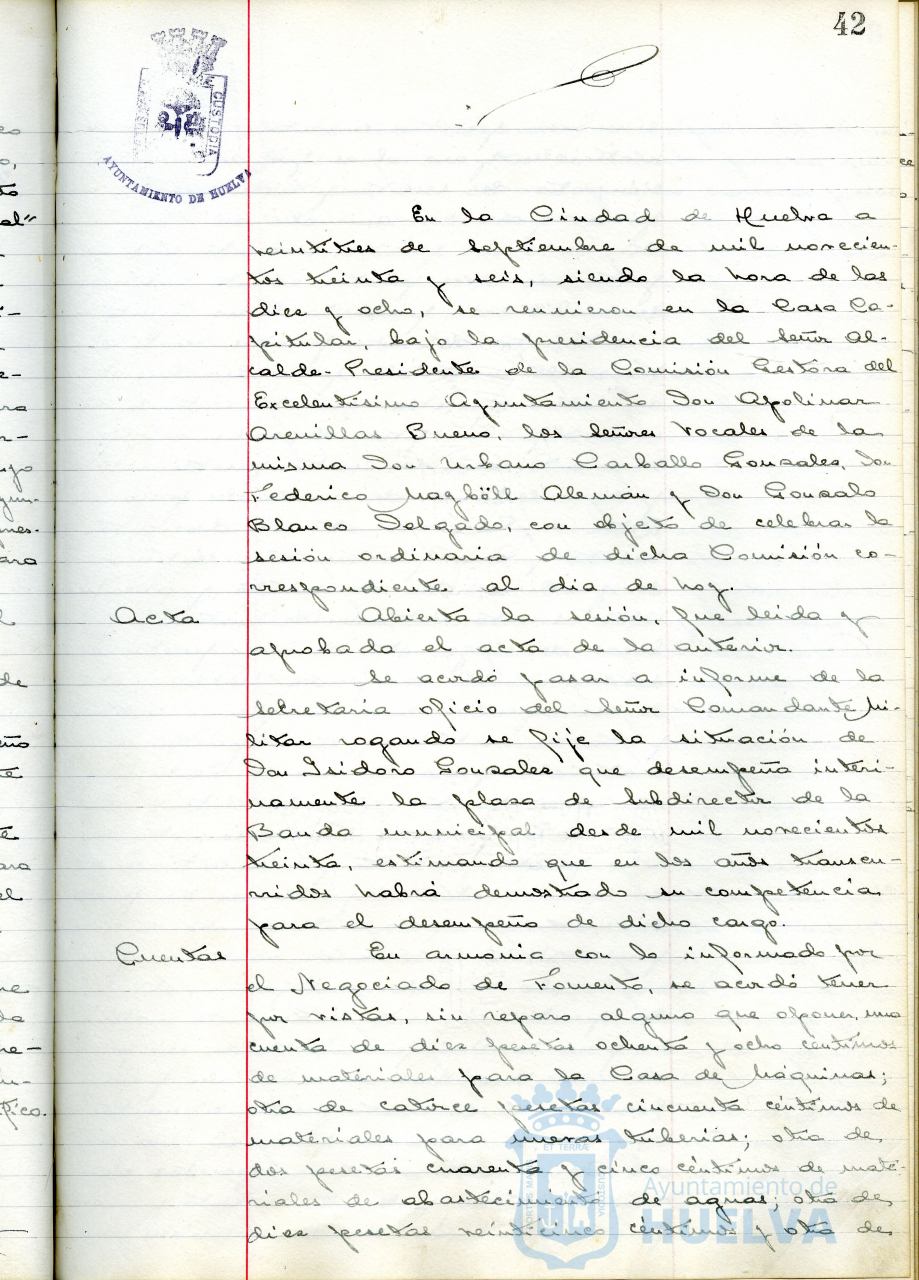 42
CUSTODIA
AYUNTAMIENTO DE HUELVA
En la Ciudad de Huelva a
veintitres de septiembre de mil novecien-
tos treinta y seis, siendo la hora de las
diez y ocho, se reunieron en la Casa Ca-
pitular, bajo la presidencia del Señor Al-
calde-Presidente de la Comisión Gestora del
Excelentísimo Ayuntamiento Don Apolinar
Arenillas Bueno, los Señores Vocales de la
misma Don Urbano Carballo Gonzales, Don
Federico Magböll Alemán y Don Gonzalo
Blanco Delgado, con objeto de celebrar la
sesión ordinaria de dicha Comisión co-
rrespondiente al dia de hoy.
Acta
Abierta la sesión, fue leida y
aprobada el acta de la anterior.
Se acordó pasar a informe de la
Secretaria oficio del Señor Comandante Mi-
litar rogando se fije la situación de
Don Isidoro Gonzales que desempeña interi-
namente la plaza de Subdirector de la
Banda municipal desde mil novecientos
treinta, estimando que en los años transcu-
rridos habrá demostrado su competencia
para el desempeño de dicho cargo.
Cuentas
En armonia con lo informado por
el Negociado de Fomento, se acordó tener
por vistas, sin reparo alguno que oponer, una
cuenta de diez pesetas ochenta y ocho centimos
de materiales para la Casa de Máquinas;
otra de catorce pesetas cincuenta céntimos de
materiales para nuevas tuberias; otra de
dos pesetas cuarenta y cinco céntimos de mate-
riales de abastecimiento de aguas; otra de
diez pesetas veinticinco céntimos y otra de
Ayuntamiento de
HUELVA